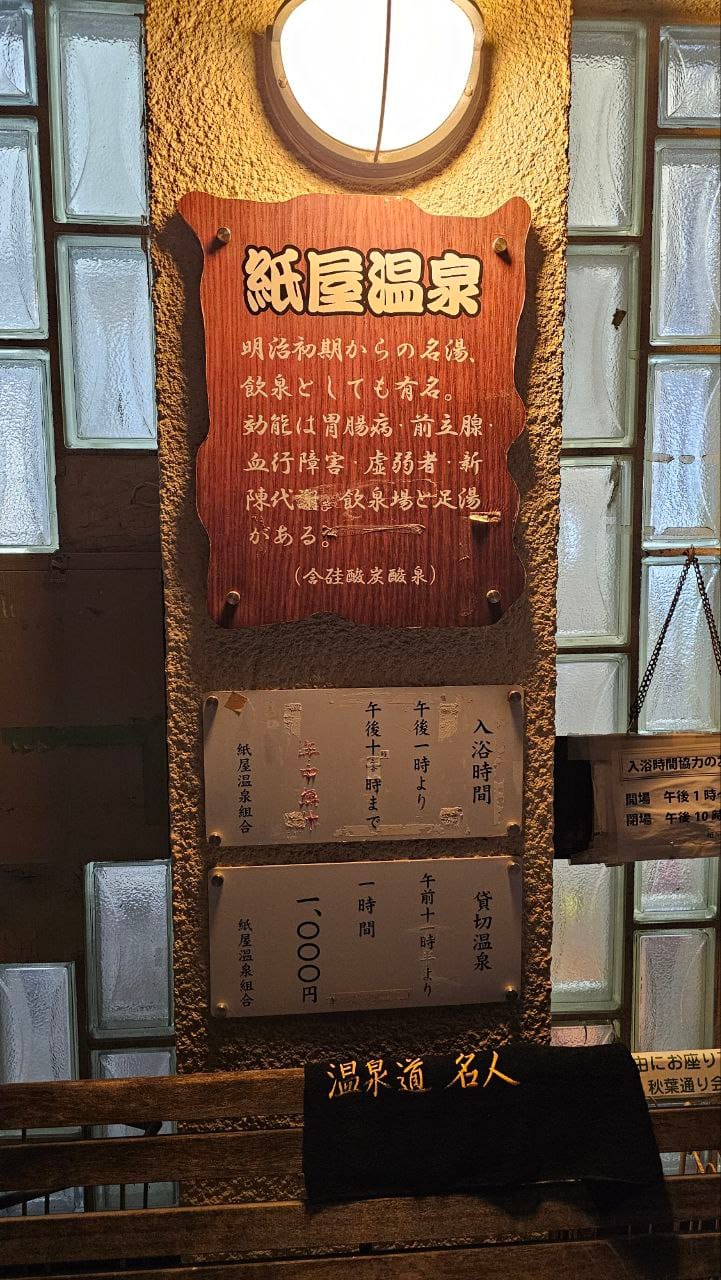 紙屋温泉
明治初期からの名湯、
飲泉としても有名。
効能は胃腸病・前立腺・
血行障害・虚弱者・新
陳代謝 飲泉場と足湯
がある。
(含硅酸炭酸泉)
入浴時間
午後一時より
午後十時まで
紙屋温泉組合
貸切温泉
午前十一時より
一時間
一、〇〇〇円
紙屋温泉組合
入浴時間協力の
開場 午後1時
閉場 午後10時
温泉道 名人
由にお座り
秋葉通り会